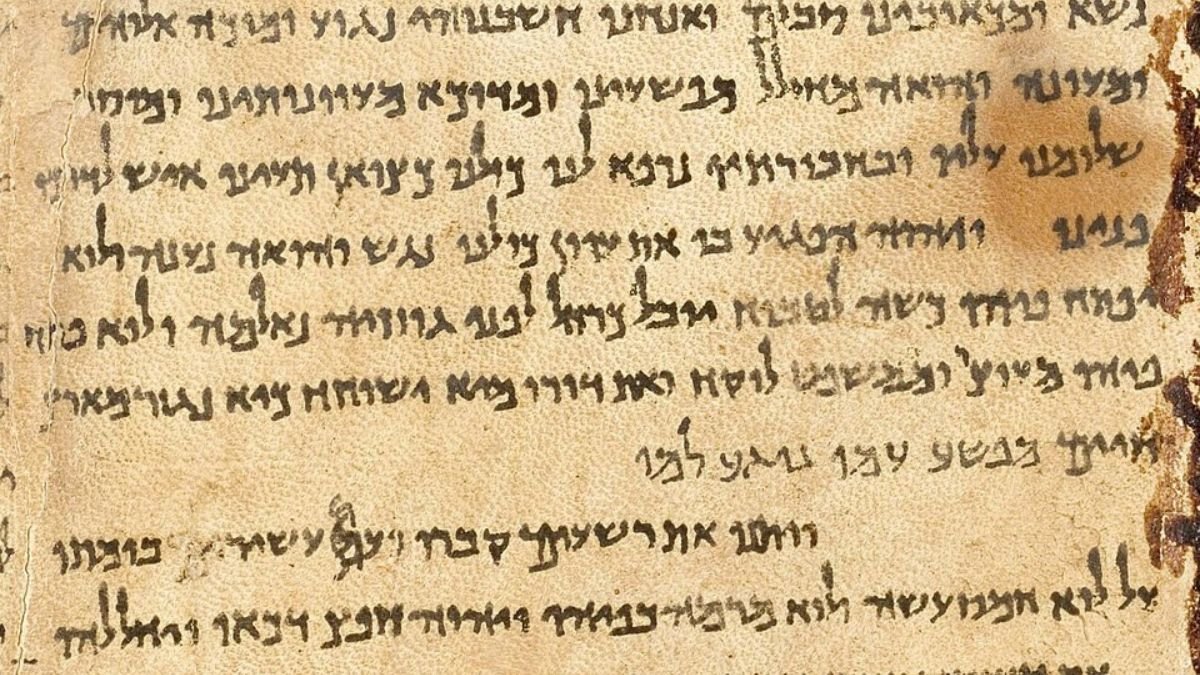 נשא ומכאובינו סבלם ואנחנו חשבנוהו נגוע ומוכה אלוהים
ומעונה והואה מחולל מפשעינו ומדוכא מעוונותינו ומוסר
שלומנו עליו ובחבורתיו נרפא לנו כולנו כצואן תעינו איש לדרכו
פנינו ויהוה הפגיע בו את עוון כולנו נגש והואה נענה ולוא
יפתח פיהו כשה לטבוח יובל כרחל לפני גוזזיה נאלמה ולוא פתח
פיהו מעוצר וממשפט לוקח ואת דורו מיא ישוחח כיא נגזר מארץ
חיים מפשע עמו נוגע למו
ויתנו את רשעים קברו ועם עשיר בומתו
על לוא חמס עשה ולוא מרמה בפיהו ויהוה חפץ דכאו ויחללהו